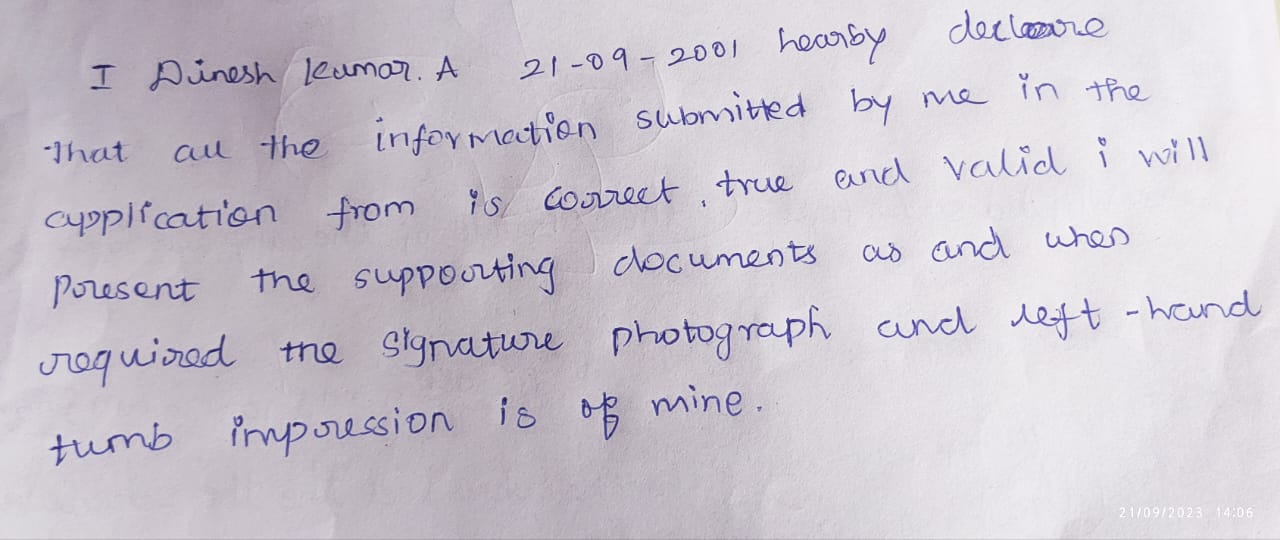 I Dinesh Kumar. A 21-09-2001 hearby declare
That all the information submitted by me in the
application from is correct, true and valid i will
present the supporting documents as and when
required the signature photograph and left-hand
tumb impression is of mine.
21/09/2023 14:06